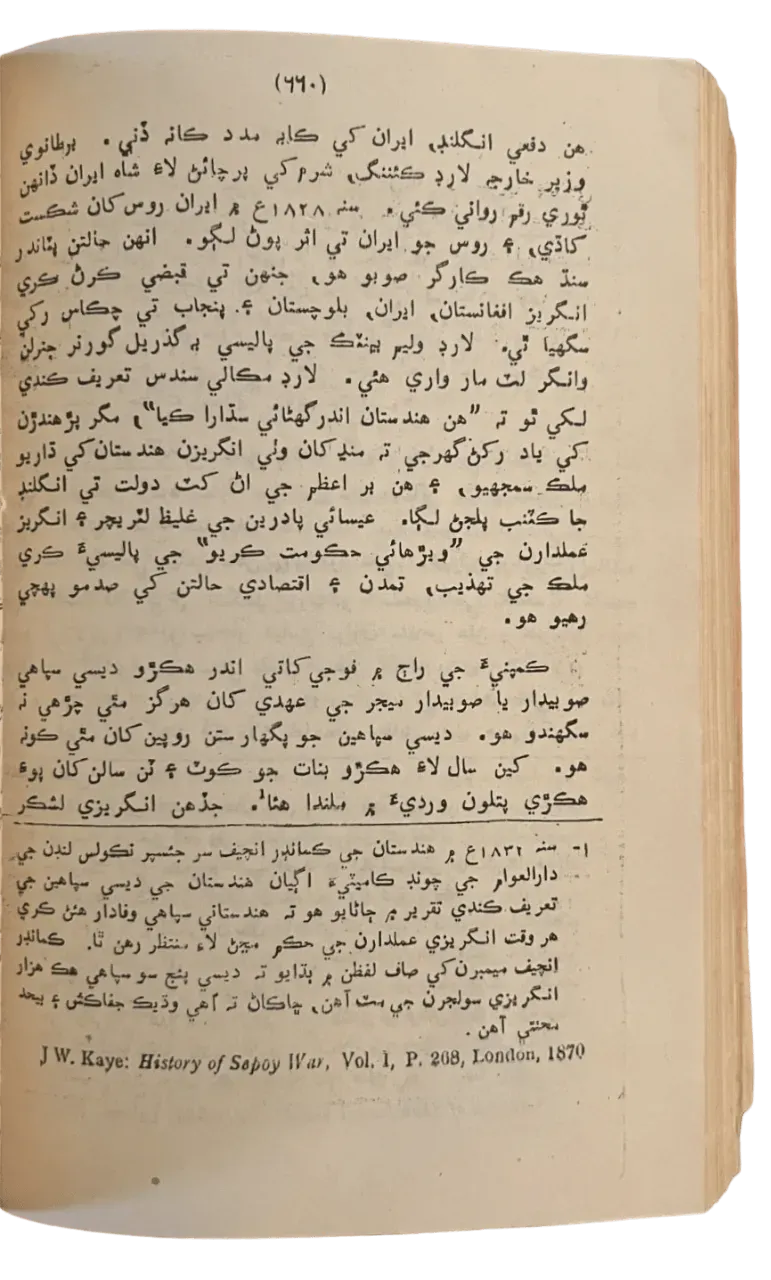 (٦٦٠)
هن دفعي انگلنڊ، ايران کي ڪابہ مدد ڪانہ ڏني. برطانوي
وزير خارجہ لارڊ ڪئننگ، شرم کي پرچائڻ لاءِ شاه ايران ڏانهن
ٿوري رقم رواني ڪئي. سنہ ١٨٢٨ع ۾ ايران روس کان شڪست
کاڌي، ۽ روس جو ايران تي اثر پوڻ لڳو. انهن حالتن پٽاندر
سنڌ هڪ ڪارگر صوبو هو، جنهن تي قبضي ڪرڻ ڪري
انگريز افغانستان، ايران، بلوچستان ۽ پنجاب تي چڪاس رکي
سگهيا ٿي. لارڊ وليم بينٽڪ جي پاليسي بہ گذريل گورنر جنرلن
وانگر لٽ مار واري هئي. لارڊ مڪالي سندس تعريف ڪندي
لکي ٿو تہ ”هن هندستان اندر گهڻائي سڌارا ڪيا“، مگر پڙهندڙن
کي ياد رکڻ گهرجي تہ منڍ کان وٺي انگريزن هندستان کي ڌاريو
ملڪ سمجهيو، ۽ هن بر اعظم جي اڻ کٽ دولت تي انگلنڊ
جا ڪٽنب پلجڻ لڳا. عيسائي پادرين جي غليظ لٽريچر ۽ انگريز
عملدارن جي ”ويڙهائي حڪومت ڪريو“ جي پاليسيءَ ڪري
ملڪ جي تهذيب، تمدن ۽ اقتصادي حالتن کي صدمو پهچي
رهيو هو.
ڪمپنيءَ جي راڄ ۾ فوجي کاتي اندر هڪڙو ديسي سپاهي
صوبيدار يا صوبيدار ميجر جي عهدي کان هرگز مٿي چڙهي نہ
سگهندو هو. ديسي سپاهين جو پگهار ستن روپين کان مٿي ڪونہ
هو. کين سال لاءِ هڪڙو بنات جو ڪوٽ ۽ ٽن سالن کان پوءِ
هڪڙي پتلون ورديءَ ۾ ملندا هئا¹. جڏهن انگريزي لشڪر
١- سنہ ١٨٣٢ع ۾ هندستان جي ڪمانڊر انچيف سر جئسپر نڪولس لنڊن جي
دارالعوام جي چونڊ ڪاميٽيءَ اڳيان هندستان جي ديسي سپاهين جي
تعريف ڪندي تقرير ۾ ڄاڻايو هو تہ هندستاني سپاهي وفادار هئڻ ڪري
هر وقت انگريزي عملدارن جي حڪم مڃڻ لاءِ منتظر رهن ٿا. ڪمانڊر
انچيف ميمبرن کي صاف لفظن ۾ ٻڌايو تہ ديسي پنج سو سپاهي هڪ هزار
انگريزي سولجرن جي مٽ آهن، ڇاڪاڻ تہ اهي وڌيڪ جفاڪش ۽ بيحد
محنتي آهن.
J W. Kaye: History of Sepoy War, Vol. 1, P. 268, London, 1870